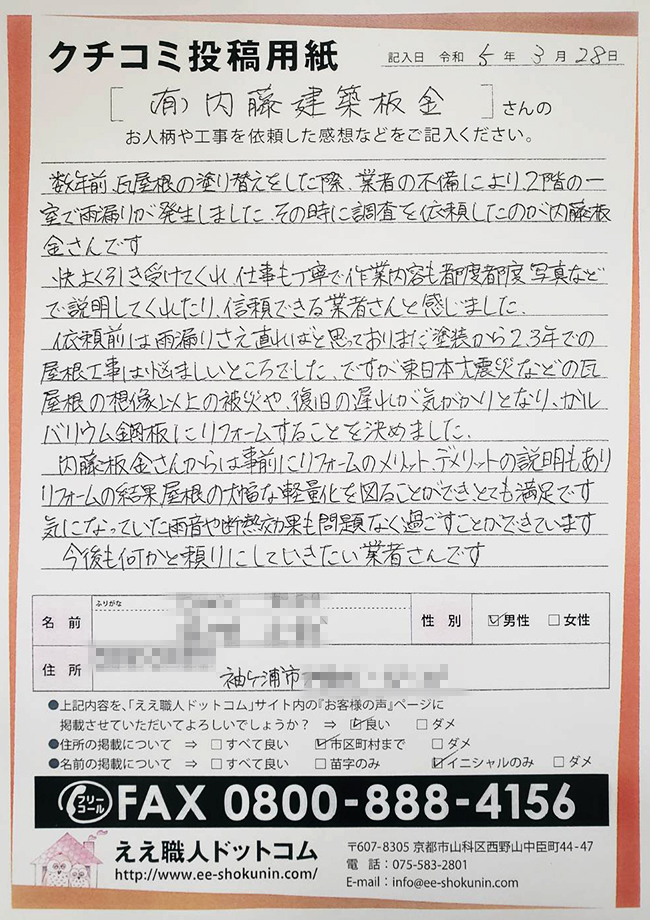 クチコミ投稿用紙
記入日 令和 5 年 3 月 28 日
[ (有)内藤建築板金 ] さんの
お人柄や工事を依頼した感想などをご記入ください。
数年前、瓦屋根の塗り替えをした際、業者の不備により、2階の一
室で雨漏りが発生しました。その時に調査を依頼したのが内藤板
金さんです
快よく引き受けてくれ、仕事も丁寧で作業内容も都度都度写真など
で説明してくれたり、信頼できる業者さんと感じました。
依頼前は雨漏りさえ直ればと思っておりまだ塗装から2.3年での
屋根工事は悩ましいところでした。ですが東日本大震災などの瓦
屋根の想像以上の被災や、復旧の遅れが気がかりとなり、ガル
バリウム鋼板にリフォームすることを決めました。
内藤板金さんからは事前にリフォームのメリット、デメリットの説明もあり
リフォームの結果屋根の大幅な軽量化を図ることができとても満足です
気になっていた雨音や断熱効果も問題なく過ごすことができています
今後も何かと頼りにしていきたい業者さんです
ふりがな
名前
性別 ☑男性 □女性
住所
袖ケ浦市
●上記内容を、「ええ職人ドットコム」サイト内の『お客様の声』ページに
掲載させていただいてよろしいでしょうか? ⇒ ☑良い □ダメ
●住所の掲載について ⇒ □すべて良い ☑市区町村まで □ダメ
●名前の掲載について ⇒ □すべて良い □苗字のみ ☑イニシャルのみ □ダメ
フリーコール FAX 0800-888-4156
ええ職人ドットコム
http://www.ee-shokunin.com/
〒607-8305 京都市山科区西野山中臣町44-47
電話:075-583-2801
E-mail:info@ee-shokunin.com